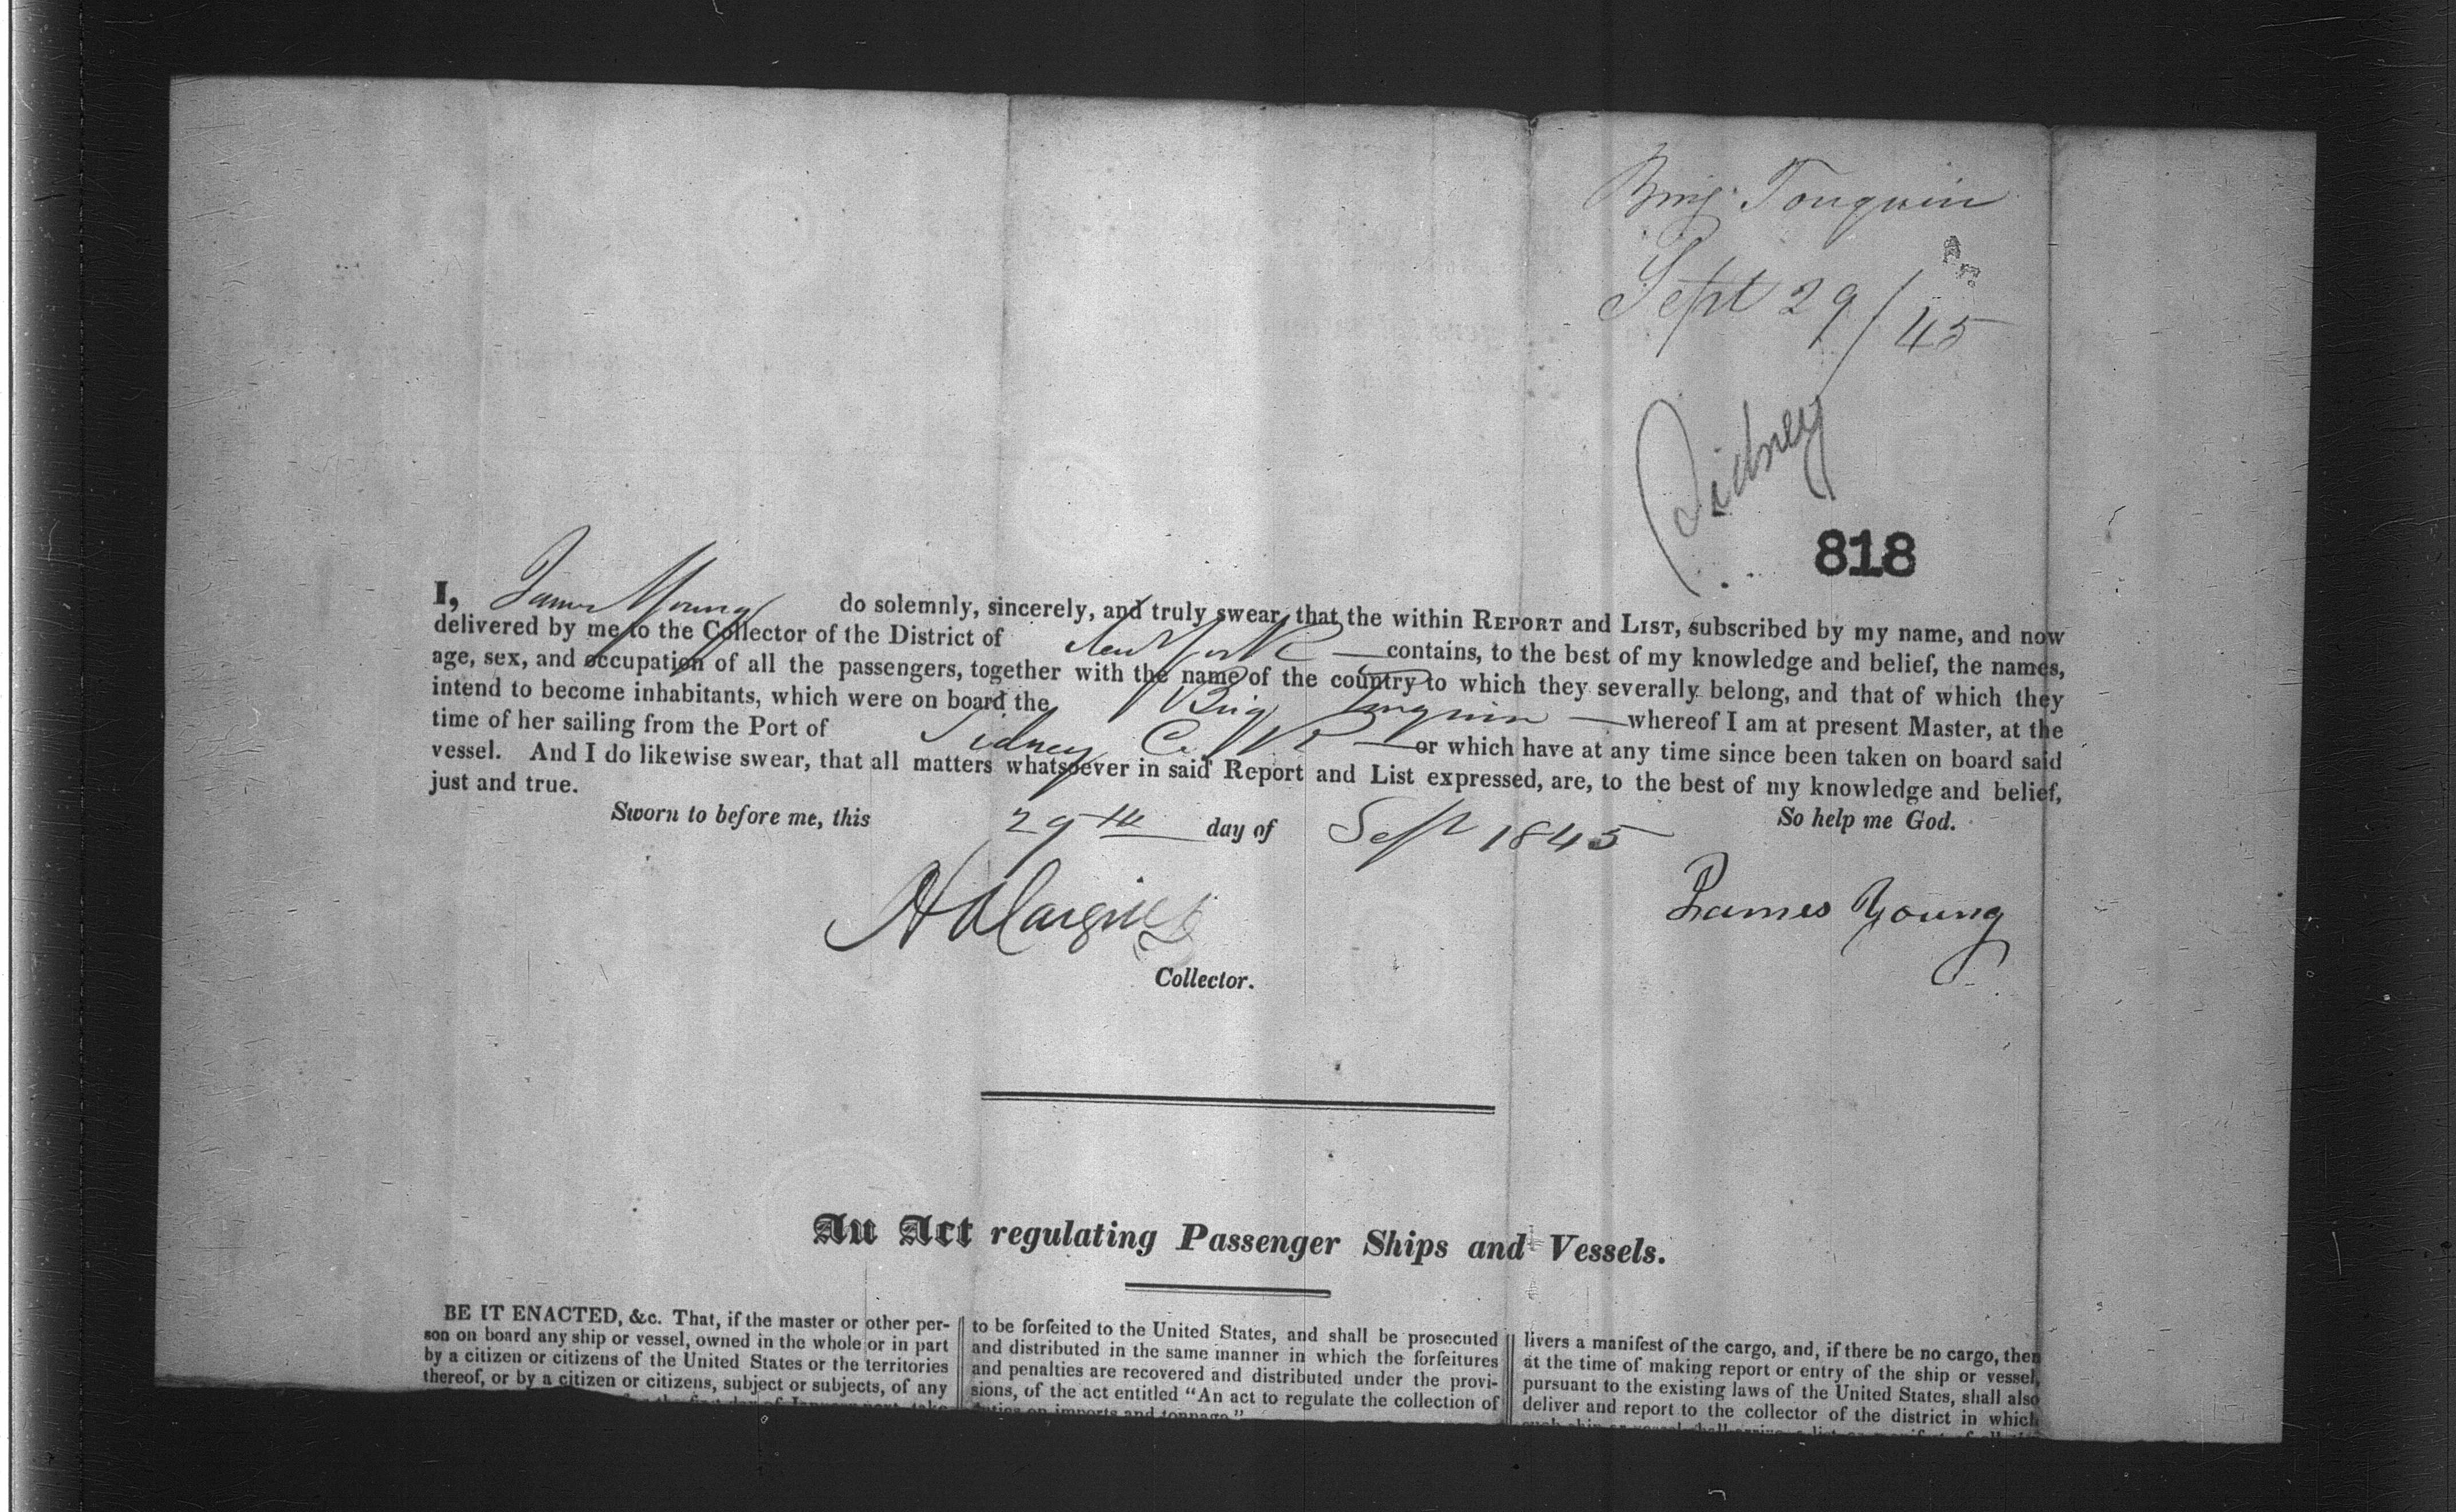 Brig Tonquin
Sept 29/45
Sidney
818
I, James Young do solemnly, sincerely, and truly swear, that the within REPORT and LIST, subscribed by my name, and now
delivered by me to the Collector of the District of New York — contains, to the best of my knowledge and belief, the names,
age, sex, and occupation of all the passengers, together with the name of the country to which they severally belong, and that of which they
intend to become inhabitants, which were on board the Brig Tonquin — whereof I am at present Master, at the
time of her sailing from the Port of Sidney — or which have at any time since been taken on board said
vessel. And I do likewise swear, that all matters whatsoever in said Report and List expressed, are, to the best of my knowledge and belief,
just and true.
So help me God.
Sworn to before me, this 29th day of Sept 1845
James Young
Collector.
An Act regulating Passenger Ships and Vessels.
BE IT ENACTED, &c. That, if the master or other per-
son on board any ship or vessel, owned in the whole or in part
by a citizen or citizens of the United States or the territories
thereof, or by a citizen or citizens, subject or subjects, of any
to be forfeited to the United States, and shall be prosecuted
and distributed in the same manner in which the forfeitures
and penalties are recovered and distributed under the provi-
sions, of the act entitled "An act to regulate the collection of
duties on imports and tonnage."
livers a manifest of the cargo, and, if there be no cargo, then
at the time of making report or entry of the ship or vessel,
pursuant to the existing laws of the United States, shall also
deliver and report to the collector of the district in which